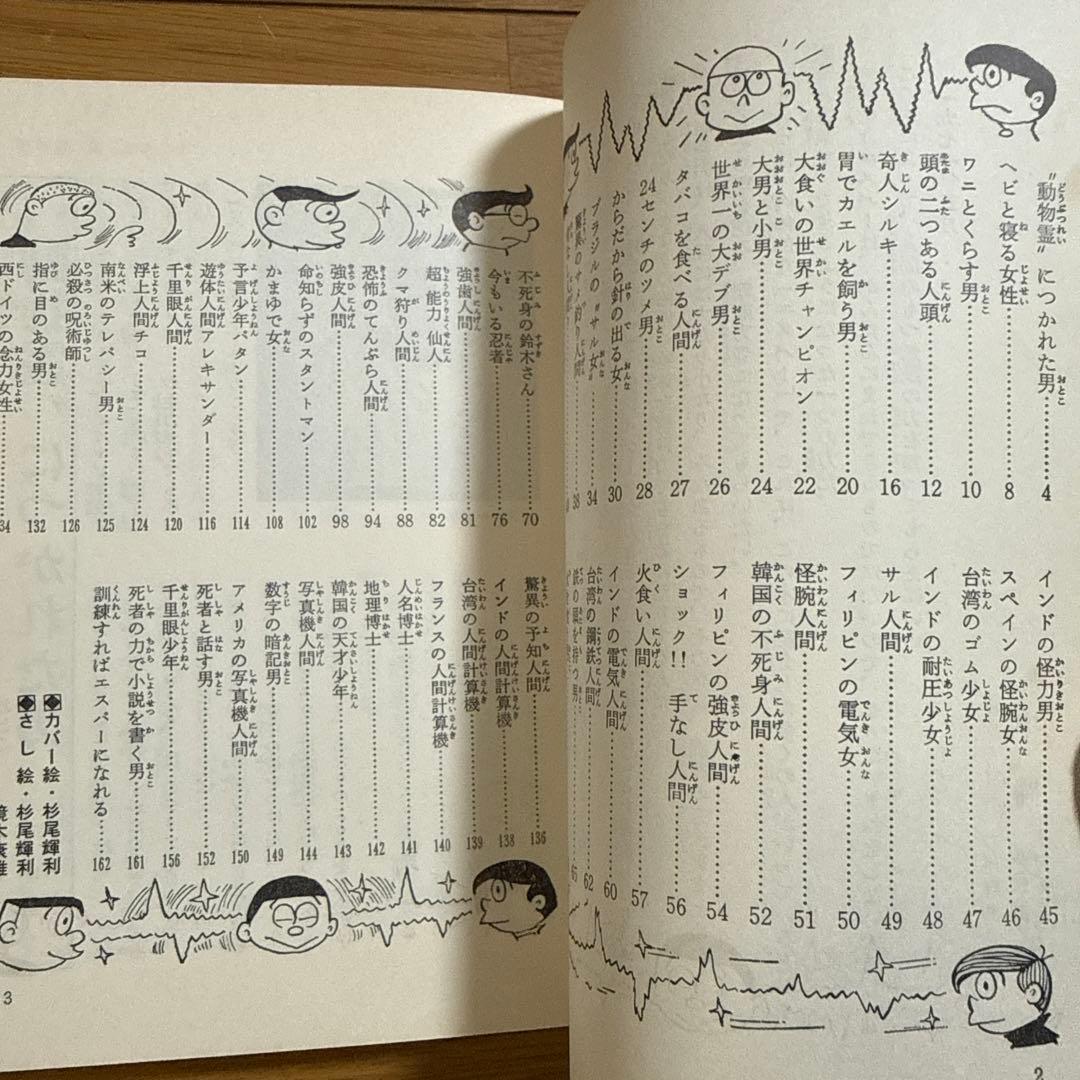 “動物霊”につかれた男……4
ヘビと寝る女性……8
ワニとくらす男……10
頭の二つある人頭……12
奇人シルキ……16
胃でカエルを飼う男……20
大食いの世界チャンピオン……22
大男と小男……24
世界一の大デブ男……26
タバコを食べる人間……27
24センチのツメ男……28
からだから針の出る女……30
ブラジルの“サル女”……34
38
インドの怪力男……45
スペインの怪腕女……46
台湾のゴム少女……47
インドの耐圧少女……48
サル人間……49
フィリピンの電気女……50
怪腕人間……51
韓国の不死身人間……52
フィリピンの強皮人間……54
ショック!! 手なし人間……56
火食い人間……57
インドの電気人間……60
台湾の鋼鉄人間……62
65
2
不死身の鈴木さん……70
今もいる忍者……76
強歯人間……81
超能力仙人……82
クマ狩り人間……88
恐怖のてんぷら人間……94
強皮人間……98
命知らずのスタントマン……102
かまゆで女……108
予言少年バタン……114
遊体人間アレキサンダー……116
千里眼人間……120
浮上人間チコ……124
南米のテレパシー男……125
必殺の呪術師……126
指に目のある男……132
西ドイツの念力女性……34
驚異の予知人間……136
インドの人間計算機……138
台湾の人間計算機……139
フランスの人間計算機……140
人名博士……141
地理博士……142
韓国の天才少年……143
写真機人間……144
数字の暗記男……149
アメリカの写真機人間……150
死者と話す男……152
千里眼少年……156
死者の力で小説を書く男……161
訓練すればエスパーになれる……162
◆カバー絵・杉尾輝利
◆さし絵・杉尾輝利
3